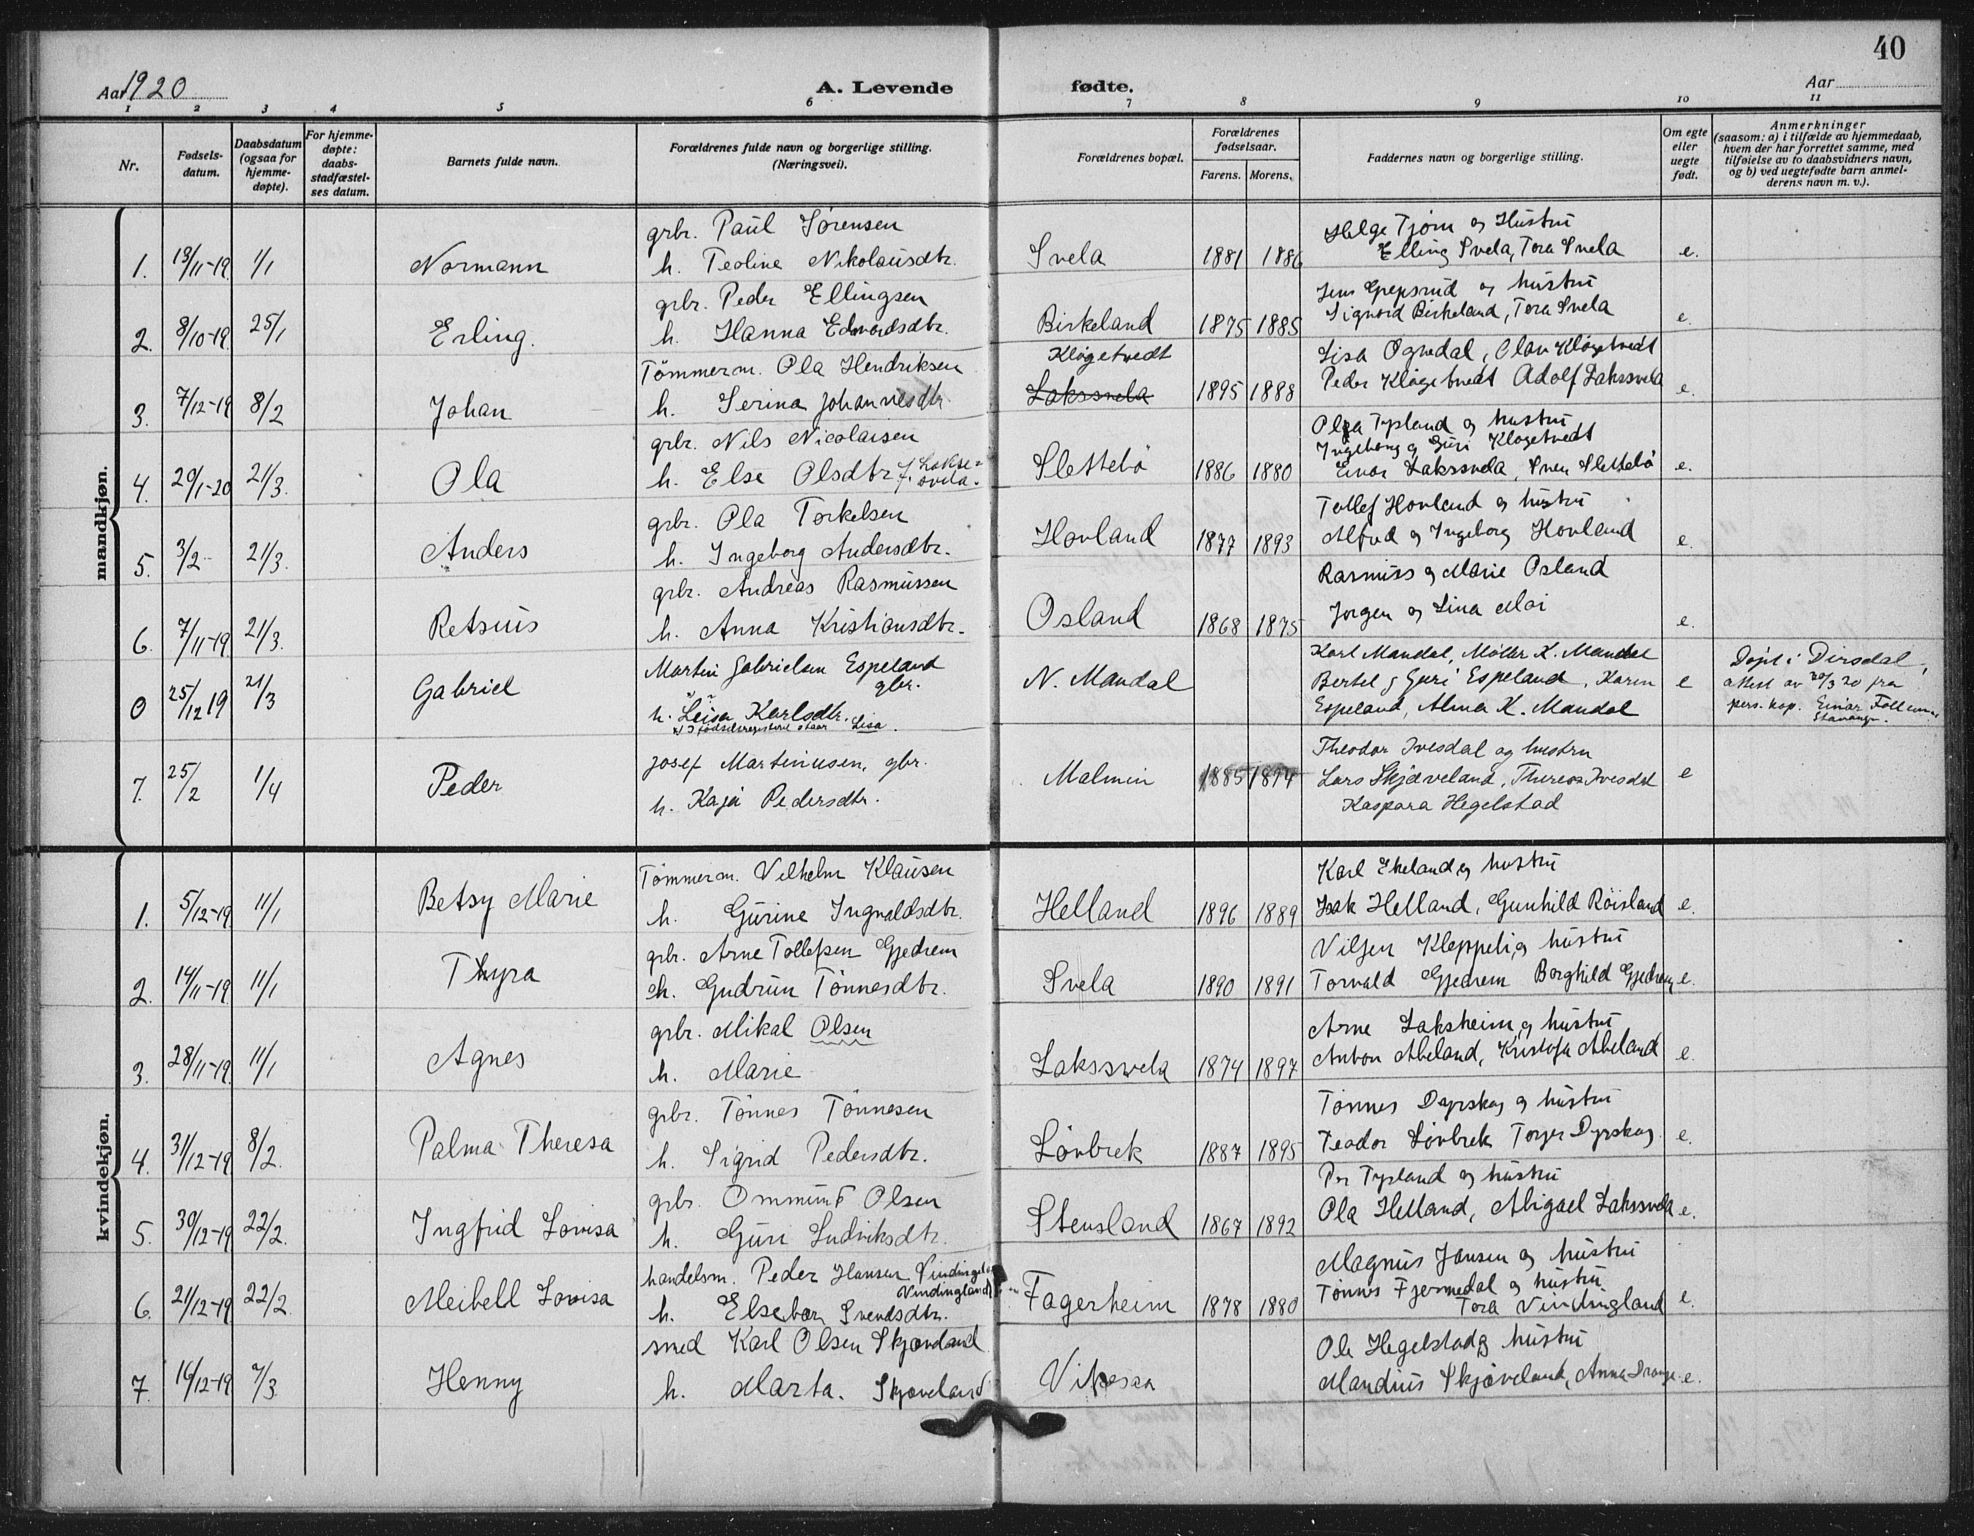 40
Aar 1920
A. Levende fødte.
Aar
1 2 3 4 5 6 7 8 9 10 11
Nr.
Fødsels-
datum.
Daabsdatum
(ogsaa for
hjemme-
døpte).
For hjemme-
døpte:
daabs-
stadfæstel-
ses datum.
Barnets fulde navn.
Forældrenes fulde navn og borgerlige stilling.
(Næringsvei).
Forældrenes bopæl.
Forældrenes
fødselsaar.
Farens. Morens.
Faddernes navn og borgerlige stilling.
Om egte
eller
uegte
født.
Anmerkninger
(saasom: a) i tilfælde av hjemmedaab,
hvem der har forrettet samme, med
tilføielse av to daabsvidners navn,
og b) ved uegtefødte barn anmel-
derens navn m. v.).
mandkjøn.
grbr. Paul Sørensen
1. 13/11-19 1/1 Normann h. Teoline Nikolausdtr. Svela 1881 1886
Helge Tjørn og Hustru
Elling Svela, Tora Svela e.
grbr. Peder Ellingsen
2. 8/10-19 25/1 Erling. h. Hanna Edvardsdtr. Birkeland 1875 1885
Jens og hustru
Sigvard Birkeland, Tora Svela e.
Tømmerm. Ola Hendriksen Kløgetvedt
3. 7/12-19 8/2 Johan h. Serina Johannesdtr Lakssvela 1895 1888
Lisa Ognedal, Olav Kløgetvedt
Peder Kløgetvedt Adolf Lakssvela e.
grbr. Nils Nicolaisen
4. 20/1-20 21/3. Ola h. Else Olsdtr f. Lakse=
svela. Slettebø 1886 1880
Olga Tysland og hustru
Ingeborg og Guri Kløgetvedt
Einar Lakssvela, Sven Slettebø e.
grbr. Ola Torkelsen
5. 3/2 21/3. Anders h. Ingeborg Andersdtr. Hovland 1877 1893
Tollef Hovland og hustru
Alfred og Ingeborg Hovland e.
grbr. Andreas Rasmussen
6. 7/11-19 21/3. Retsius h. Anna Kristiansdtr. Osland 1868 1875
Rasmus og Marie Osland
Jorgen og Lina Moi e.
Martin Gabrielsen Espeland
gbr.
0 25/12 19 21/3 Gabriel h. Leisa Karlsdtr. N. Mandal
x) I fødselsregisteret staar Lisa.
Karl Mandal, Møller K. Mandal
Bertel & Guri Espeland, Karen
Espeland, Alma K. Mandal e
Døpt i Dirsdal,
attest av 20/3 20 fra
pers. kap. Einar
Stavanger.
Josef Martinusen, gbr.
7. 25/2 1/4 Peder h. Kaja Pedersdtr. Malmin 1885 1894
Theodor Ivesdal og hustru
Lars Skjæveland, Theresa Ivesdal
Kaspara Hegelstad e
kvindekjøn.
Tømmerm. Vilhelm Klausen
1. 5/12-19 11/1 Betsy Marie h. Gurine Ingvaldsdtr. Helland 1896 1889
Karl Ekeland og hustru
Isak Helland, Gunhild Røisland e.
grbr. Arne Tollefsen Gjedrem
2. 14/11-19 11/1 Thyra h. Gudrun Tønnesdtr. Svela 1890 1891
Viljen Kleppeli og hustru
Torvald Gjedrem Borghild Gjedrem e.
grbr. Mikal Olsen
3. 28/11-19 11/1 Agnes h. Marie Lakssvela 1874 1897
Arne Laksheim og hustru
Anton Abeland, Kristofa Abeland e.
grbr. Tønnes Tønnesen
4. 31/12-19 8/2. Palma Theresa h. Sigrid Pedersdtr. Løvbrek 1887 1895
Tønnes Dyrskog og hustru
Teodor Løvbrek Torger Dyrskog. e.
grbr. Ommund Olsen
5. 30/12-19 22/2. Ingfrid Lovisa h. Guri Ludviksdtr. Stensland 1867 1892
Per Tysland og hustru
Ola Helland, Abigael Lakssvela e.
handelsm. Peder Hansen
Vindingland
6. 21/12-19 22/2. Meibell Lovisa h. Elsebær Svendsdtr. Fagerheim 1878 1880
Magnus Jansen og hustru
Tønnes Fjermedal og hustru
Tora Vindingland e.
smed Karl Olsen Skjæveland
7. 16/12-19 7/3. Henny h. Marta. Skjæveland Vikesaa
Ole Hegelstad og hustru
Mandius Skjæveland, Anna Drange e.